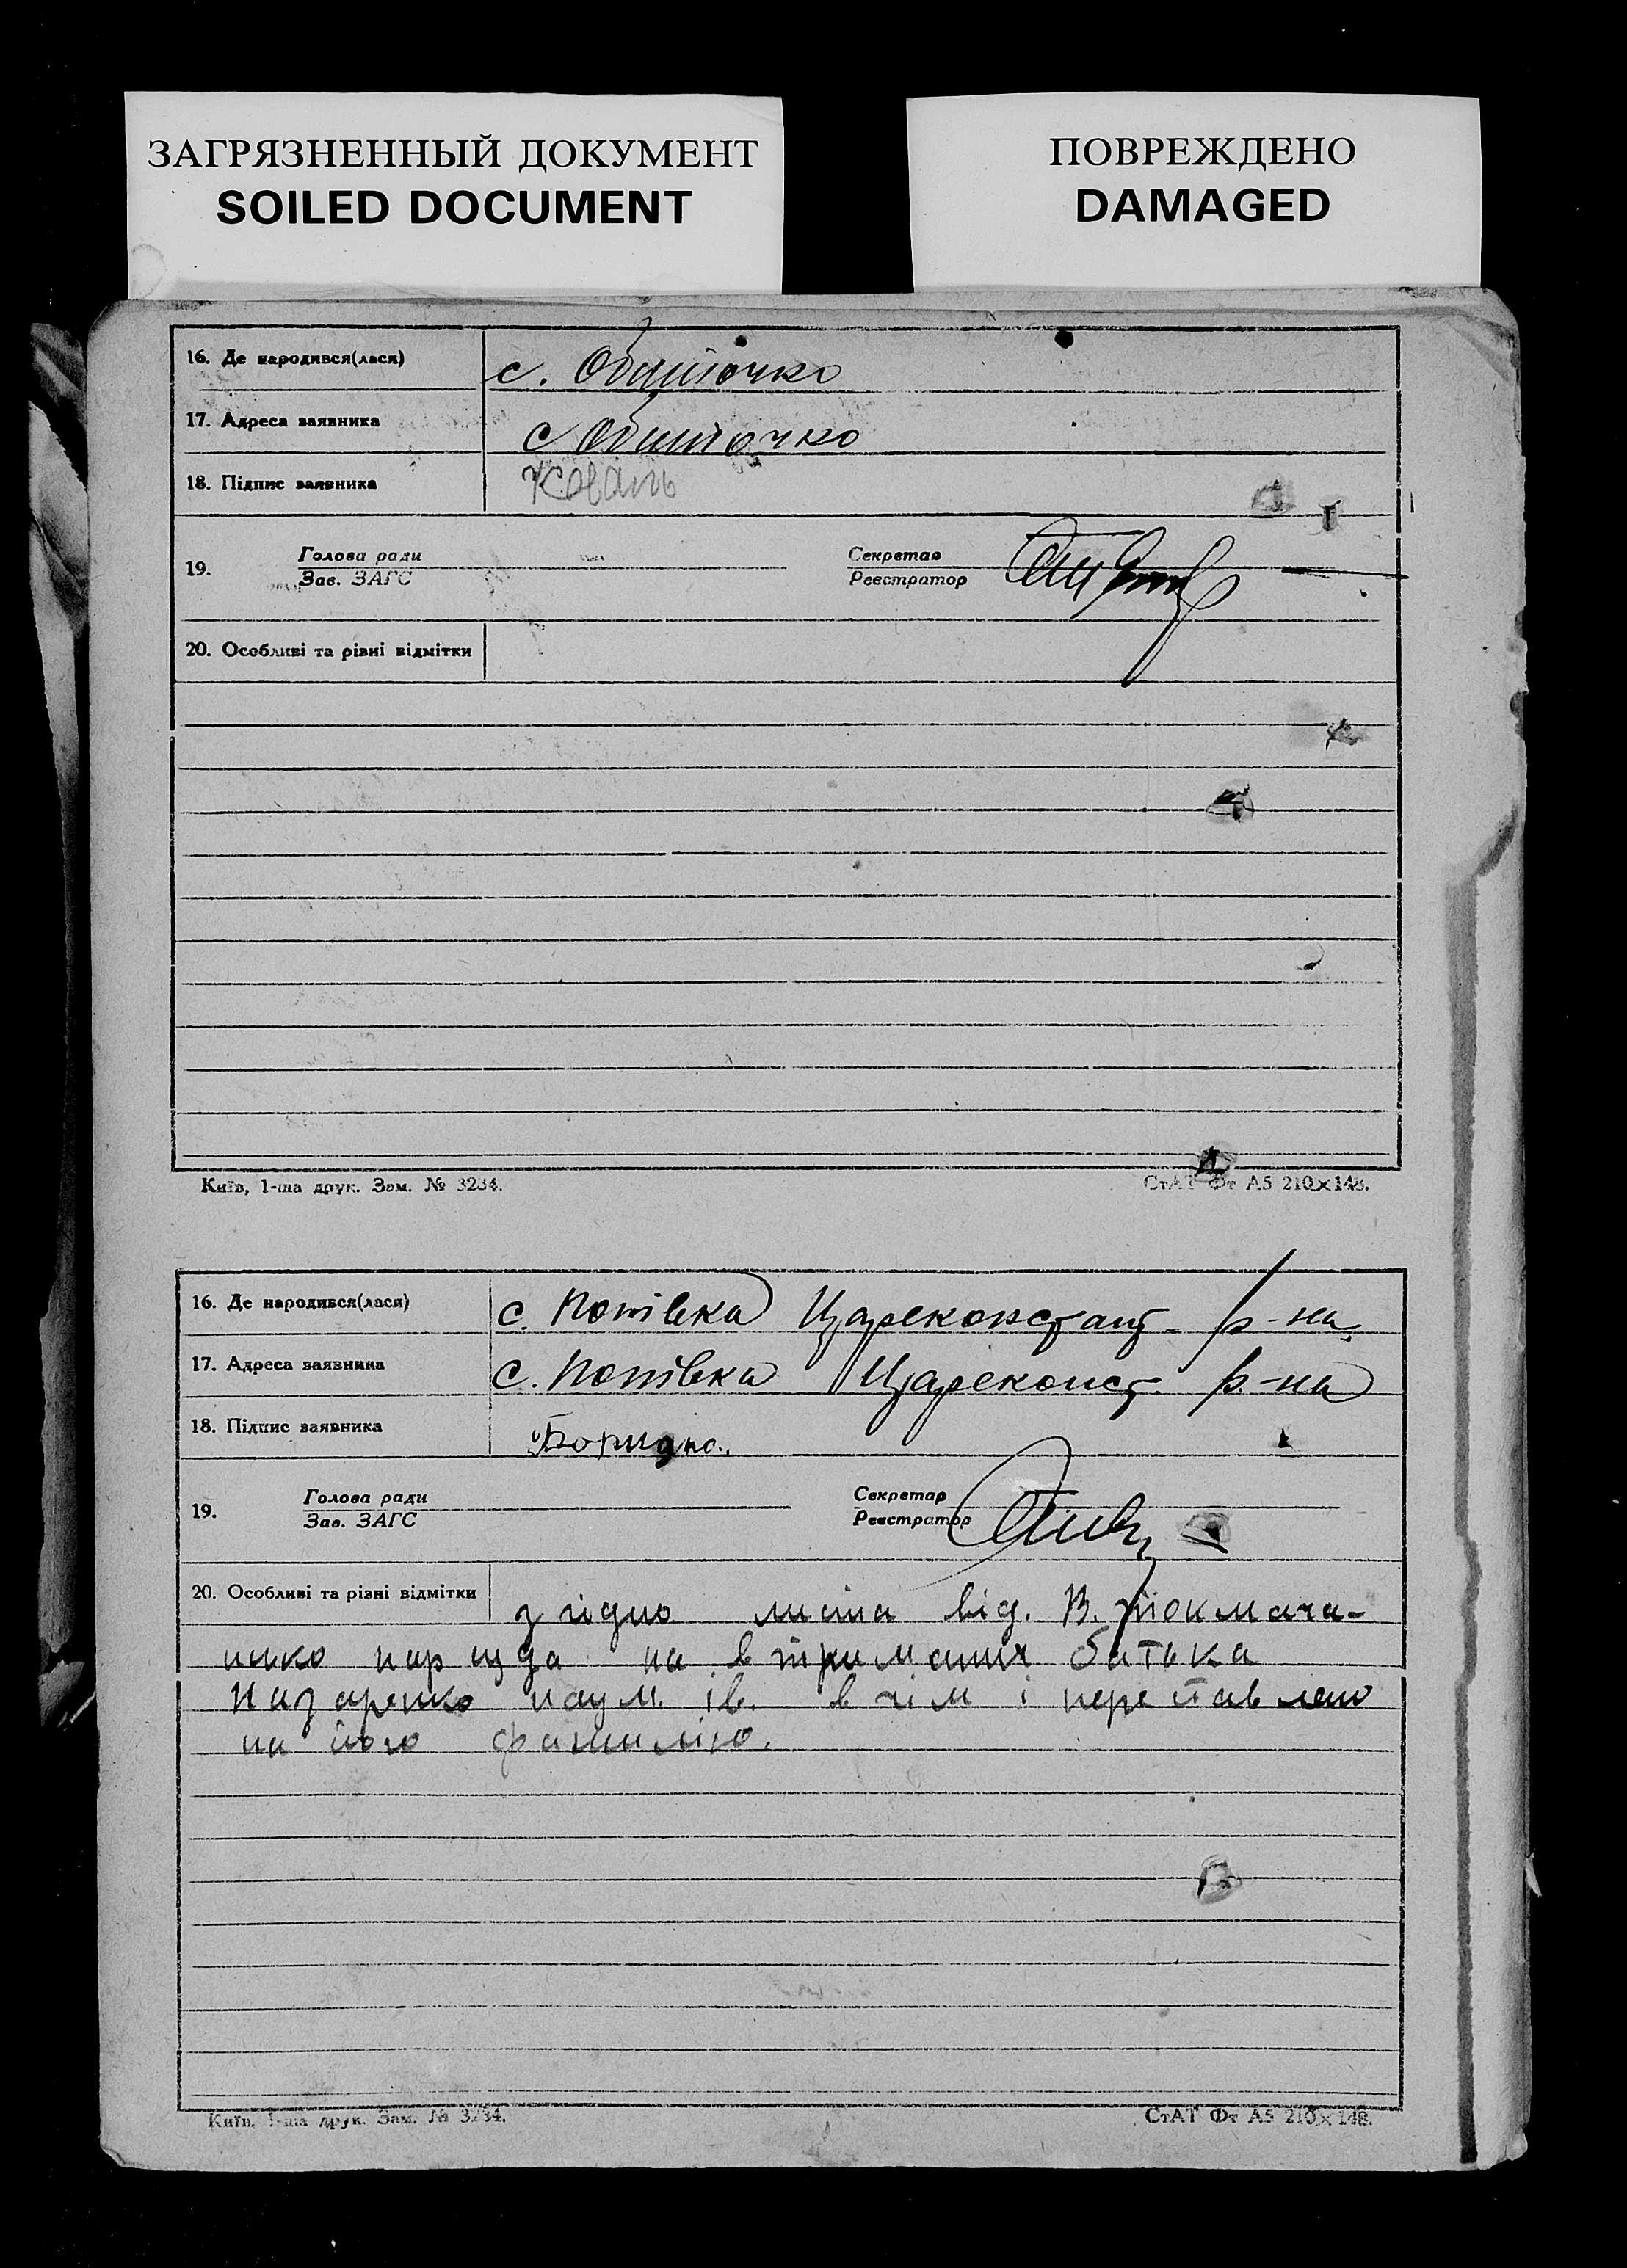 ЗАГРЯЗНЕННЫЙ ДОКУМЕНТ
SOILED DOCUMENT
ПОВРЕЖДЕНО
DAMAGED
16. Де народився(лася) с. Обиточко
17. Адреса заявника с Обиточко
18. Підпис заявника Коваль
19. Голова ради
Зав. ЗАГС
Секретар
Реєстратор
20. Особливі та різні відмітки
Київ, 1-ша друк. Зам. № 3234.
СтАТ Фт А5 210×148.
16. Де народився(лася) с. Попівка Цареконстант р-на
17. Адреса заявника с. Попівка Цареконст. р-на
18. Підпис заявника
19. Голова ради
Зав. ЗАГС
Секретар
Реєстратор
20. Особливі та різні відмітки згідно листа від. В. Токмача-
нсько нарсуда на втримання батька
Назаренко Наум. Ів. в чім і переставлено
на його фамилію.
Київ, 1-ша друк. Зам. № 3234.
СтАТ Фт А5 210×148.